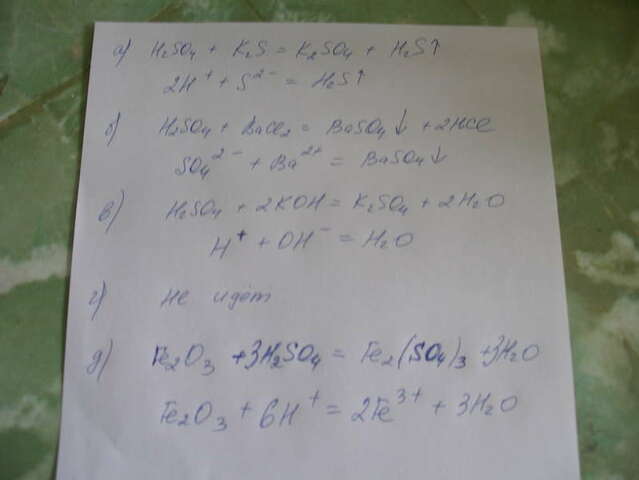 а) H₂SO₄ + K₂S = K₂SO₄ + H₂S↑
2H⁺ + S²⁻ = H₂S↑
б) H₂SO₄ + BaCl₂ = BaSO₄↓ + 2HCl
SO₄²⁻ + Ba²⁺ = BaSO₄↓
в) H₂SO₄ + 2KOH = K₂SO₄ + 2H₂O
H⁺ + OH⁻ = H₂O
г) не идёт
д) Fe₂O₃ + 3H₂SO₄ = Fe₂(SO₄)₃ + 3H₂O
Fe₂O₃ + 6H⁺ = 2Fe³⁺ + 3H₂O